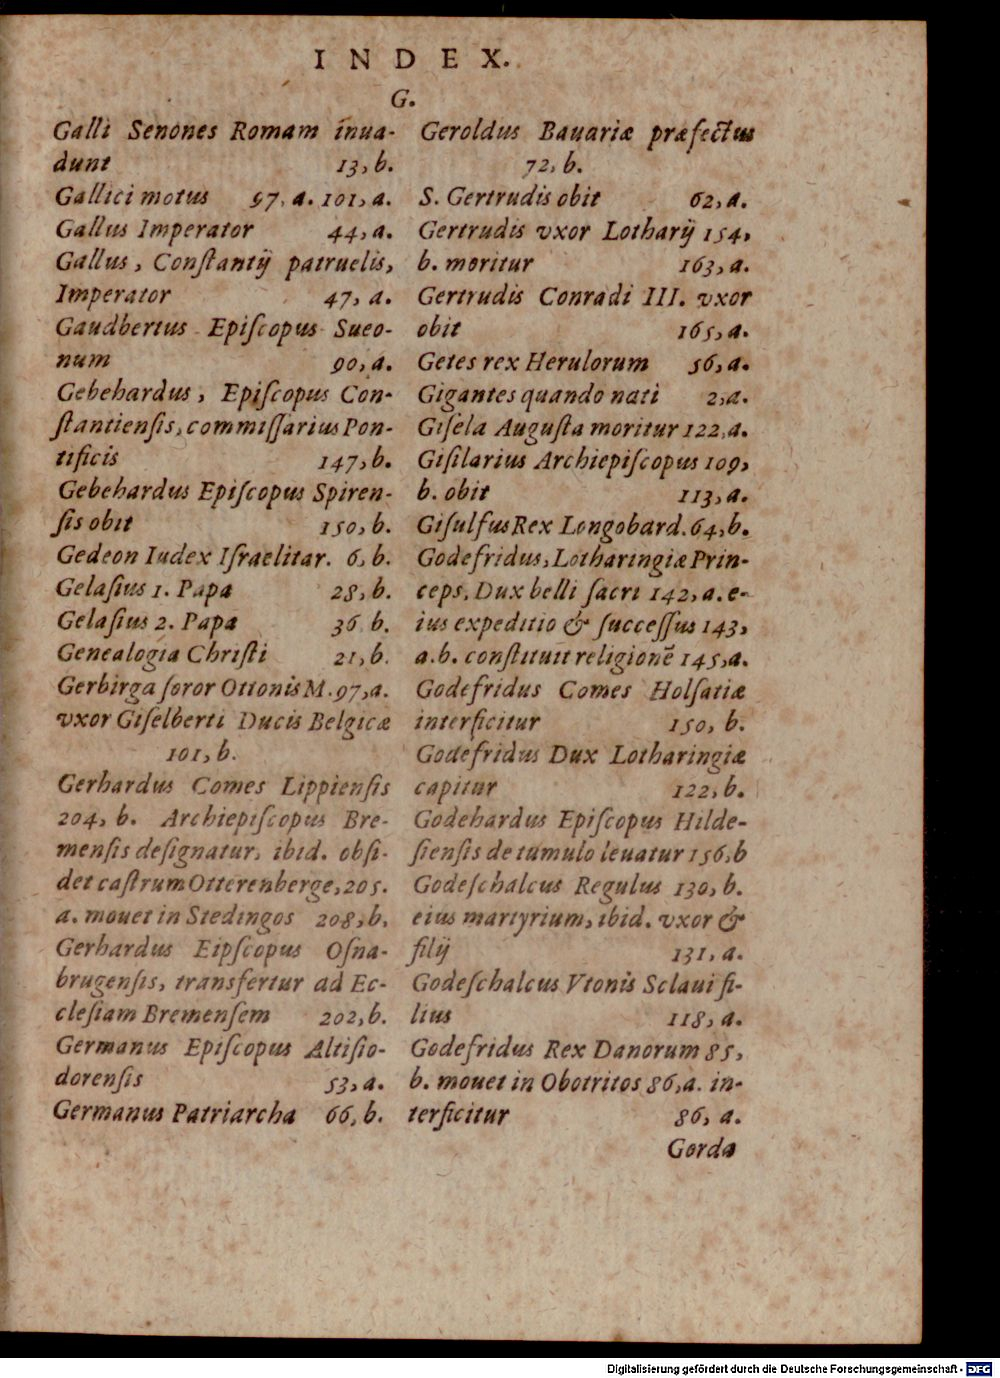 INDEX.
G.
Galli Senones Romam inua-
dunt 13, b.
Gallici motus 97, a. 101, a.
Gallus Imperator 44, a.
Gallus, Conſtantij patruelis,
Imperator 47, a.
Gaudbertus Epiſcopus Sueo-
num 90, a.
Gebehardus, Epiſcopus Con-
ſtantienſis, commiſſarius Pon-
tificis 147, b.
Gebehardus Epiſcopus Spiren-
ſis obit 150, b.
Gedeon Iudex Iſraelitar. 6, b.
Gelaſius 1. Papa 28, b.
Gelaſius 2. Papa 36 b.
Genealogia Chriſti 21, b.
Gerbirga ſoror Ottonis M. 97, a.
vxor Giſelberti Ducis Belgicæ
101, b.
Gerhardus Comes Lippienſis
204, b. Archiepiſcopus Bre-
menſis deſignatur, ibid. obſi-
det caſtrum Otterenberge, 205.
a. mouet in Stedingos 208, b.
Gerhardus Eipſcopus Oſna-
brugenſis, transfertur ad Ec-
cleſiam Bremenſem 202, b.
Germanus Epiſcopus Altiſio-
dorenſis 53, a.
Germanus Patriarcha 66, b.
Geroldus Bauariæ præfectus
72, b.
S. Gertrudis obit 62, a.
Gertrudis vxor Lotharij 154,
b. moritur 163, a.
Gertrudis Conradi III. vxor
obit 165, a.
Getes rex Herulorum 56, a.
Gigantes quando nati 2, a.
Giſela Auguſta moritur 122, a.
Giſilarius Archiepiſcopus 109,
b. obit 113, a.
Giſulfus Rex Longobard. 64, b.
Godefridus, Lotharingiæ Prin-
ceps, Dux belli ſacri 142, a. e-
ius expeditio & ſucceſſus 143,
a. b. conſtituit religionē 145, a.
Godefridus Comes Holſatiæ
interficitur 150, b.
Godefridus Dux Lotharingiæ
capitur 122, b.
Godehardus Epiſcopus Hilde-
ſienſis de tumulo leuatur 156, b
Godeſchalcus Regulus 130, b.
eius martyrium, ibid. vxor &
filij 131, a.
Godeſchalcus Vtonis Sclaui fi-
lius 118, a.
Godefridus Rex Danorum 85,
b. mouet in Obotritos 86, a. in-
terficitur 86, a.
Gorda
Digitalisierung gefördert durch die Deutsche Forschungsgemeinschaft - DFG